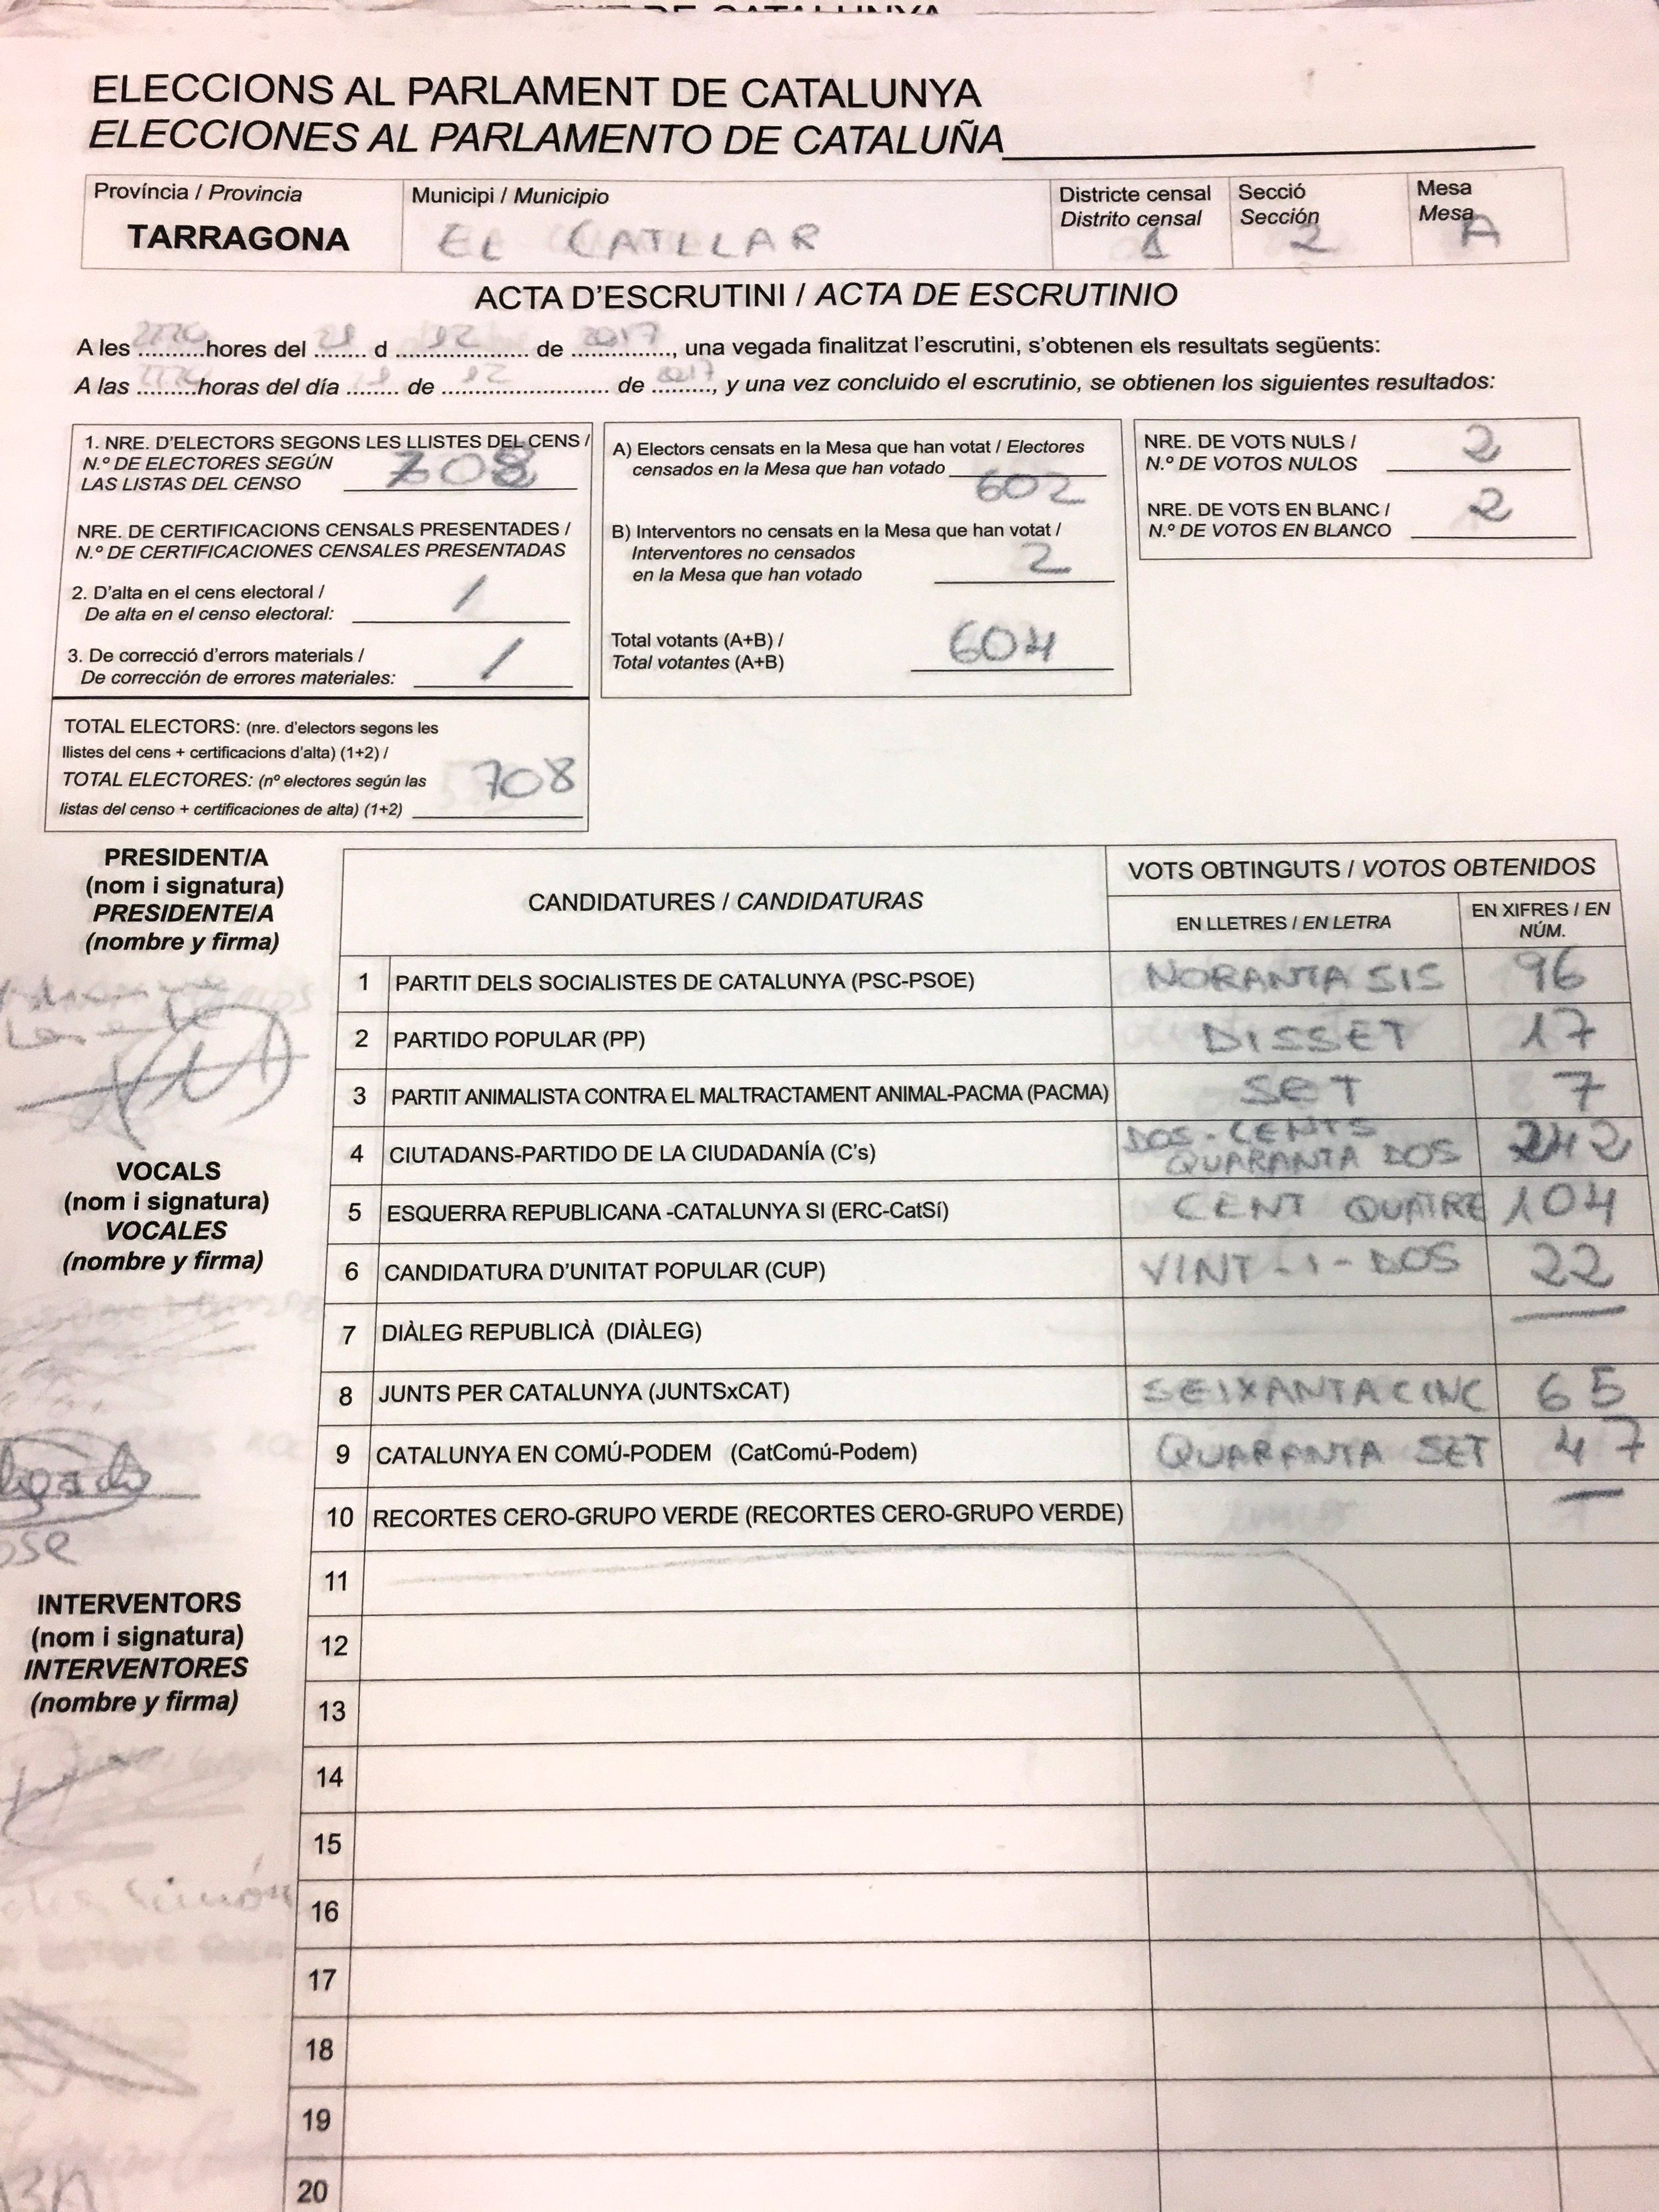 ELECCIONS AL PARLAMENT DE CATALUNYA
ELECCIONES AL PARLAMENTO DE CATALUÑA
Província / Provincia
TARRAGONA
Municipi / Municipio
EL CATLLAR
Districte censal
Distrito censal
1
Secció
Sección
2
Mesa
Mesa
A
ACTA D'ESCRUTINI / ACTA DE ESCRUTINIO
A les hores del d 12 de 2017, una vegada finalitzat l'escrutini, s'obtenen els resultats següents:
A las horas del día de 12 de 2017, y una vez concluido el escrutinio, se obtienen los siguientes resultados:
1. NRE. D'ELECTORS SEGONS LES LLISTES DEL CENS /
N.º DE ELECTORES SEGÚN
LAS LISTAS DEL CENSO 708
NRE. DE CERTIFICACIONS CENSALS PRESENTADES /
N.º DE CERTIFICACIONES CENSALES PRESENTADAS
2. D'alta en el cens electoral /
De alta en el censo electoral: /
3. De correcció d'errors materials /
De corrección de errores materiales: /
TOTAL ELECTORS: (nre. d'electors segons les
llistes del cens + certificacions d'alta) (1+2) /
TOTAL ELECTORES: (nº electores según las
listas del censo + certificaciones de alta) (1+2) 708
A) Electors censats en la Mesa que han votat / Electores
censados en la Mesa que han votado 602
B) Interventors no censats en la Mesa que han votat /
Interventores no censados
en la Mesa que han votado 2
Total votants (A+B) /
Total votantes (A+B) 604
NRE. DE VOTS NULS /
N.º DE VOTOS NULOS 2
NRE. DE VOTS EN BLANC /
N.º DE VOTOS EN BLANCO 2
PRESIDENT/A
(nom i signatura)
PRESIDENTE/A
(nombre y firma)
VOCALS
(nom i signatura)
VOCALES
(nombre y firma)
INTERVENTORS
(nom i signatura)
INTERVENTORES
(nombre y firma)
CANDIDATURES / CANDIDATURAS
VOTS OBTINGUTS / VOTOS OBTENIDOS
EN LLETRES / EN LETRA
EN XIFRES / EN
NÚM.
1 PARTIT DELS SOCIALISTES DE CATALUNYA (PSC-PSOE) NORANTA SIS 96
2 PARTIDO POPULAR (PP) DISSET 17
3 PARTIT ANIMALISTA CONTRA EL MALTRACTAMENT ANIMAL-PACMA (PACMA) SET 7
4 CIUTADANS-PARTIDO DE LA CIUDADANÍA (C's) DOS-CENTS QUARANTA DOS 242
5 ESQUERRA REPUBLICANA -CATALUNYA SI (ERC-CatSí) CENT QUATRE 104
6 CANDIDATURA D'UNITAT POPULAR (CUP) VINT-I-DOS 22
7 DIÀLEG REPUBLICÀ (DIÀLEG) —
8 JUNTS PER CATALUNYA (JUNTSxCAT) SEIXANTA CINC 65
9 CATALUNYA EN COMÚ-PODEM (CatComú-Podem) QUARANTA SET 47
10 RECORTES CERO-GRUPO VERDE (RECORTES CERO-GRUPO VERDE) —
11
12
13
14
15
16
17
18
19
20